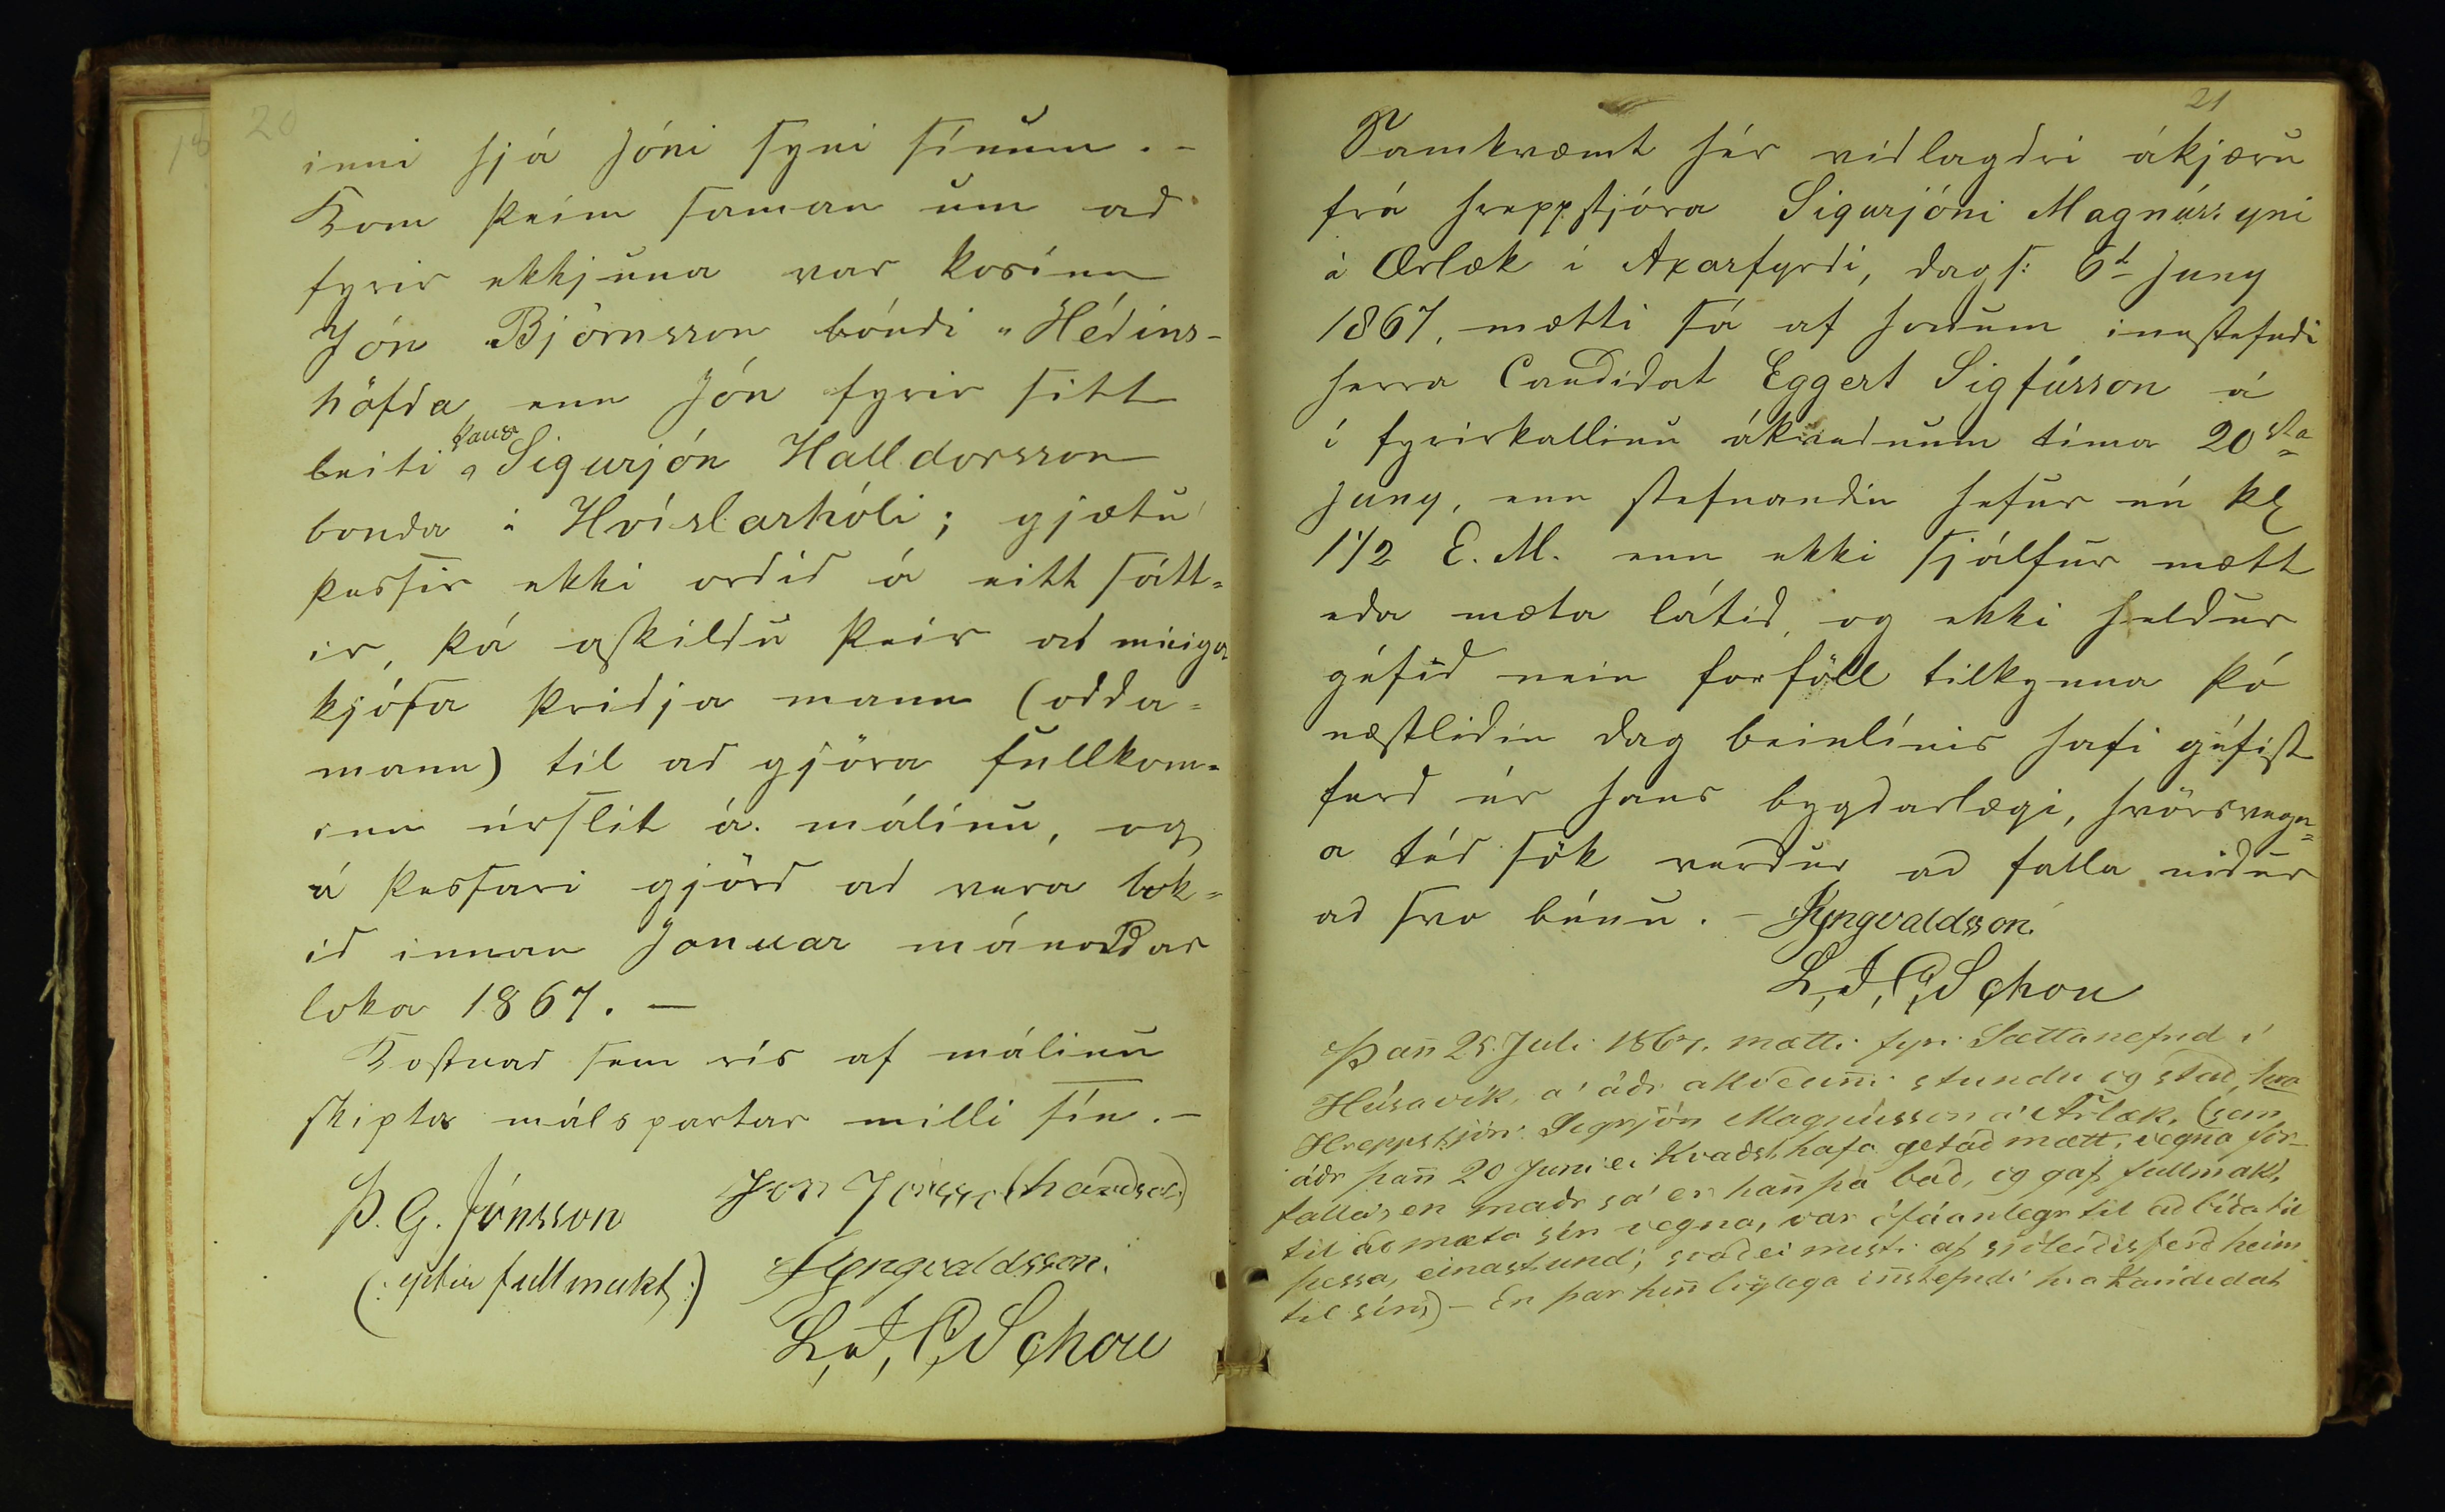 20
inni hjá Jóni syni sínum. –
Kom þeim saman um ad
fyrir ekkjuna var kosinn
Jón Björnsson bóndi á Hédins-
höfda, enn Jón fyrir sitt
beiti kaus Sigurjón Halldorsson
bonda á Hvíslarhóli; gjætu
þessir ekki ordid á eitt sátt-
ir, þá askildu þeir ad meiga
kjósa þridja mann (odda-
mann) til ad gjöra fullkom-
inn úrslit á málinu, og
á þessari gjörd ad vera lok-
id innan Januar mánadar
loka 1867. –
Kostnad sem rís af málinu
skipta málspartar milli sín. –
Þ. G. Jónsson Jon Jónsso (handsal)
(: eptir fullmakt :) Pyngvaldsson.
L. J. C. Schou
21
Samkvæmt hér vidlagdri ákjæru
frá hreppstjóra Sigurjóni Magnússyni
á Ærlæk í Axarfyrdi, dags: 6t Juny
1867, mætti sá af honum innstefndi
herra Candidat Eggert Sigfússon á
í fyrirkallinu ákvednum tíma 20sta
Juny, enn stefnandin hefur nú kl
1 1/2 E. M. enn ekki sjálfur mætt
eda mæta látid, og ekki heldur
géfid nein forföll tilkynna þó
næstlidin dag beinlínis hafi géfist
ferd úr hans bygdarlægi, hvörsvegn-
a téd sök verdur ad falla nidur
ad svo búnu. – Pyngvaldsson.
L. J. C. Schou
Þan̄ 25. Juli 1867. mætti fyri Sættanefnd í
Húsavík, á ádr akvedin̄i stundu og stad, hra
Hreppstjóri Sigrjón Magnússon á Ærlæk, (sem
ádr þan̄ 20 Juni ei kvadst hafa getad mætt, vegna for-
falla, en madr sá er han̄ þá bad, og gaf fullmakt,
til ad mæta sín vegna, var ófáanlegr til ad bída til
þessa, einastund; svo ad ei misti af sideidisferd heim
til sín) – En þar hin̄ liglega in̄stefndi hra Kandidat